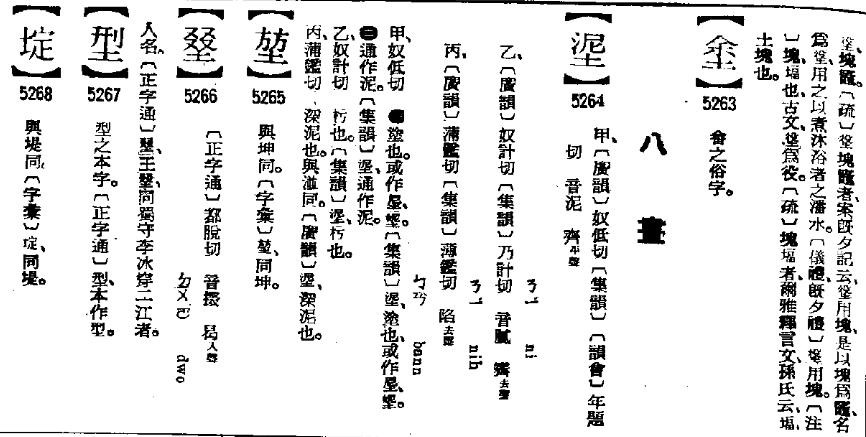 垼塊竈。〔疏〕垼塊竈者案旣夕記云垼用塊、是以塊爲竈名
爲垼、用之以煮沐浴者之潘水。〔儀禮、旣夕禮〕垼用塊。〔注〕
塊、堛也、古文、垼爲役。〔疏〕塊堛者爾雅釋言文、孫氏云、堛、
土塊也。
5263
畲之俗字。
八畫
【埿】
5264
甲、〔廣韻〕奴低切〔集韻〕〔韻會〕年題
切 音泥 齊平聲
ㄋㄧ ni
乙、〔廣韻〕奴計切〔集韻〕乃計切 音膩 霽去聲
ㄋㄧ nih
丙、〔廣韻〕蒲鑑切〔集韻〕薄鑑切 陷去聲
ㄅㄢ bann
甲、奴低切 ㊀塗也。或作㞾、塈。〔集韻〕埿、塗也、或作㞾、塈。
㊁通作泥。〔集韻〕埿、通作泥。
乙、奴計切 杇也。〔集韻〕埿、杇也。
丙、蒲鑑切 深泥也、與湴同。〔廣韻〕埿、深泥也。
【堃】
5265
與坤同。〔字彙〕堃、同坤。
5266
〔正字通〕都脫切 音掇 曷入聲
ㄉㄨㄛ dwo
人名。〔正字通〕
【型】
5267
型之本字。〔正字通〕型、本作型。
【埞】
5268
與堤同。〔字彙〕埞、同堤。